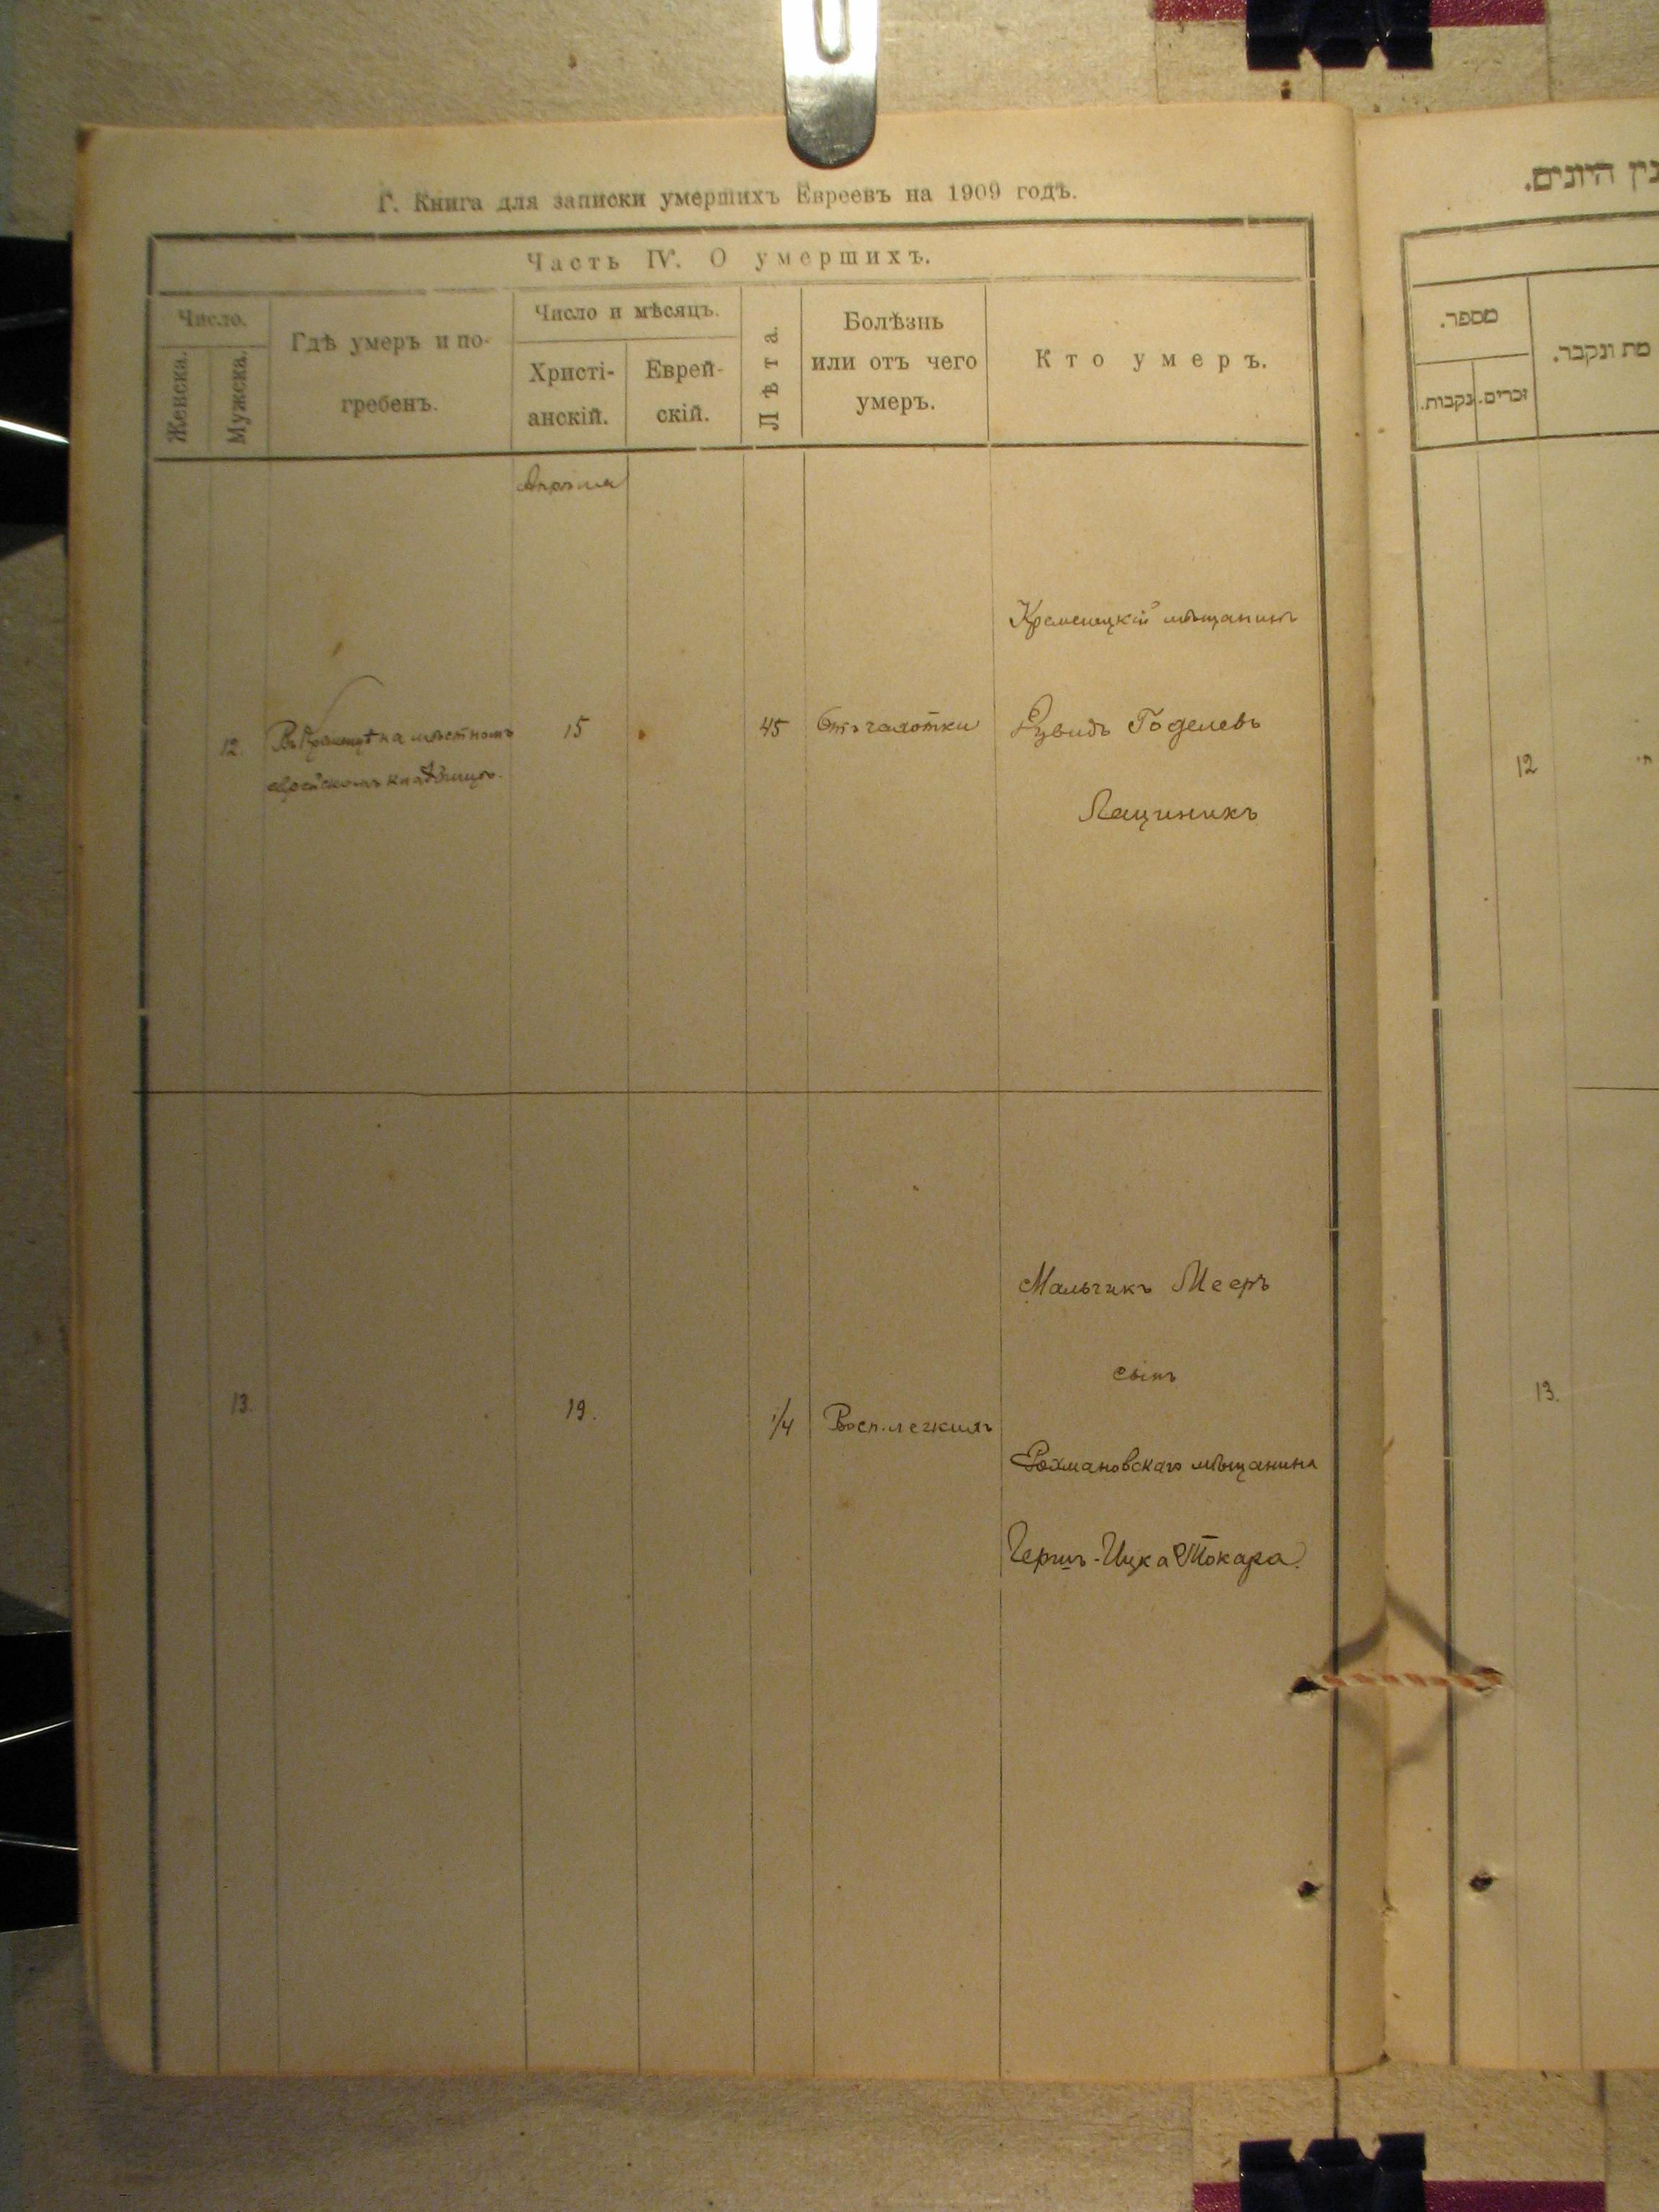 Г. Книга для записки умершихъ Евреевъ на 1909 годъ.
Часть IV. О умершихъ.
Число.
Женска.
Мужска.
Гдѣ умеръ и по-
гребенъ.
Число и мѣсяцъ.
Христі-
анскій.
Еврей-
скій.
Лѣта.
Болѣзнь
или отъ чего
умеръ.
Кто умеръ.
Апрѣля
Кременецкій мѣщанинъ
12. на мѣстномъ 15 45 Отъ чахотки Годелевъ
еврейскомъ кладбищѣ.
Лациникъ
Мальчикъ Мееръ
сынъ
13. 19. 1/4 Восп. легкихъ
Рохмановскаго мѣщанина
Гершъ-Ицка Токара.
נין היונים.
מספר.
זכרים.
נקבות.
מת ונקבר.
12
13.